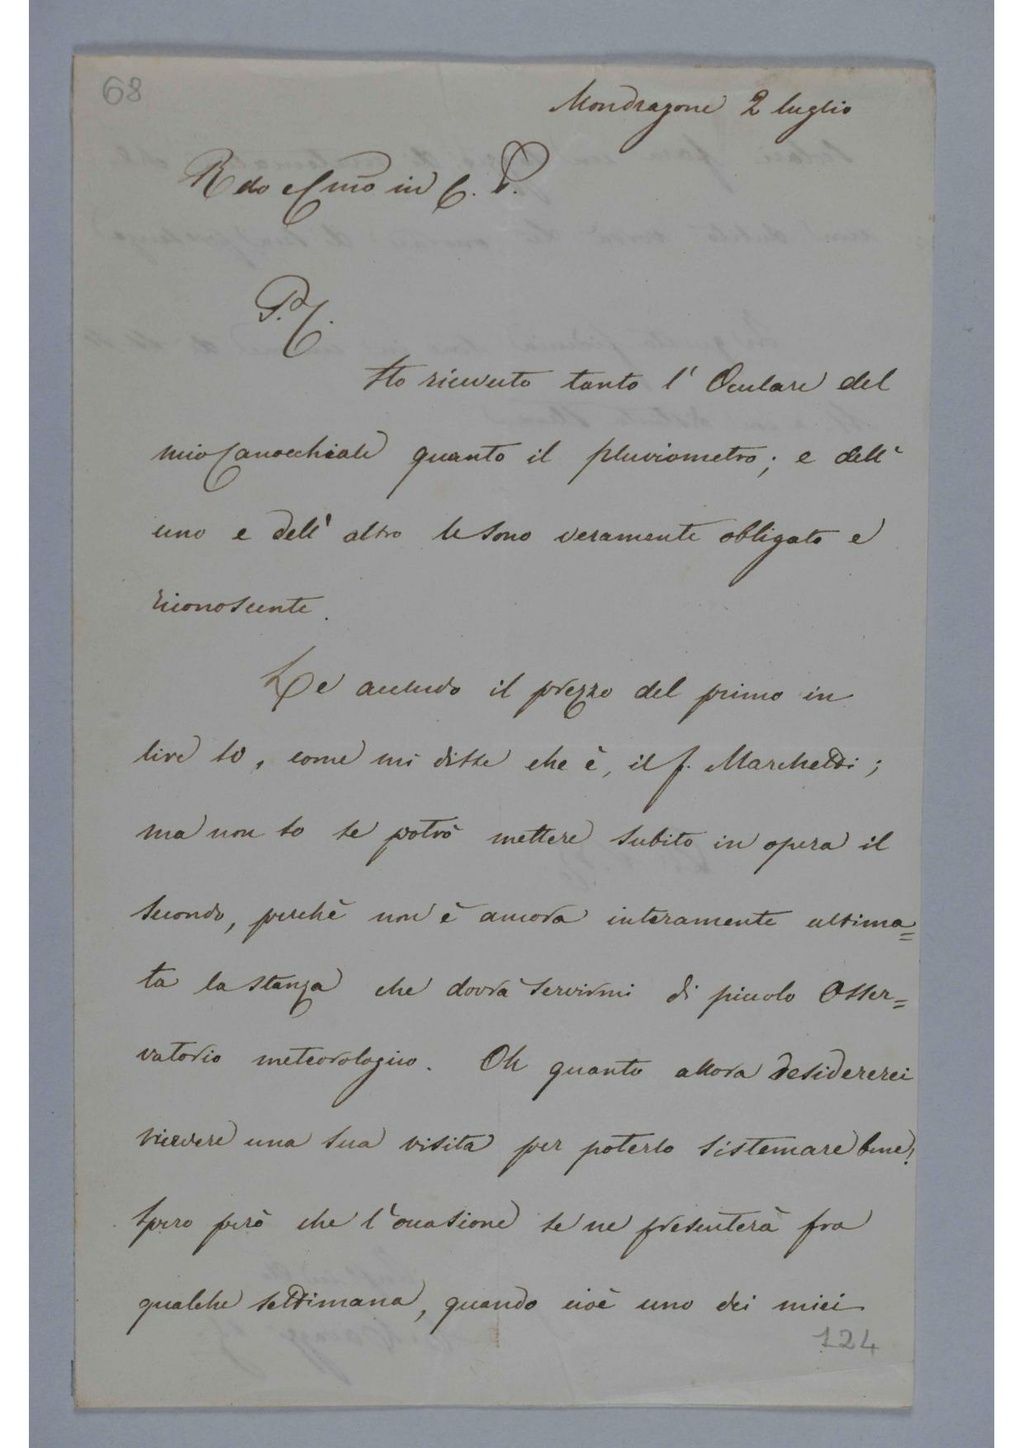 68
Mondragone 2 luglio
Rdo e Cmo in C. P.
P. C.
Ho ricevuto tanto l' Oculare del
mio Canocchiale quanto il pluviometro; e dell'
uno e dell' altro le sono veramente obbligato e
riconoscente.
Le accludo il prezzo del primo in
lire 10, come mi disse che è, il f. Marchetti;
ma non so se potrò mettere subito in opera il
secondo, perchè non è ancora interamente ultima=
ta la stanza che dovrà servirmi di piccolo Osser=
vatorio meteorologico. Oh quanto allora desidererei
ricevere una sua visita per poterlo sistemare bene!
Spero però che l'occasione se ne presenterà fra
qualche settimana, quando cioè uno dei miei
124